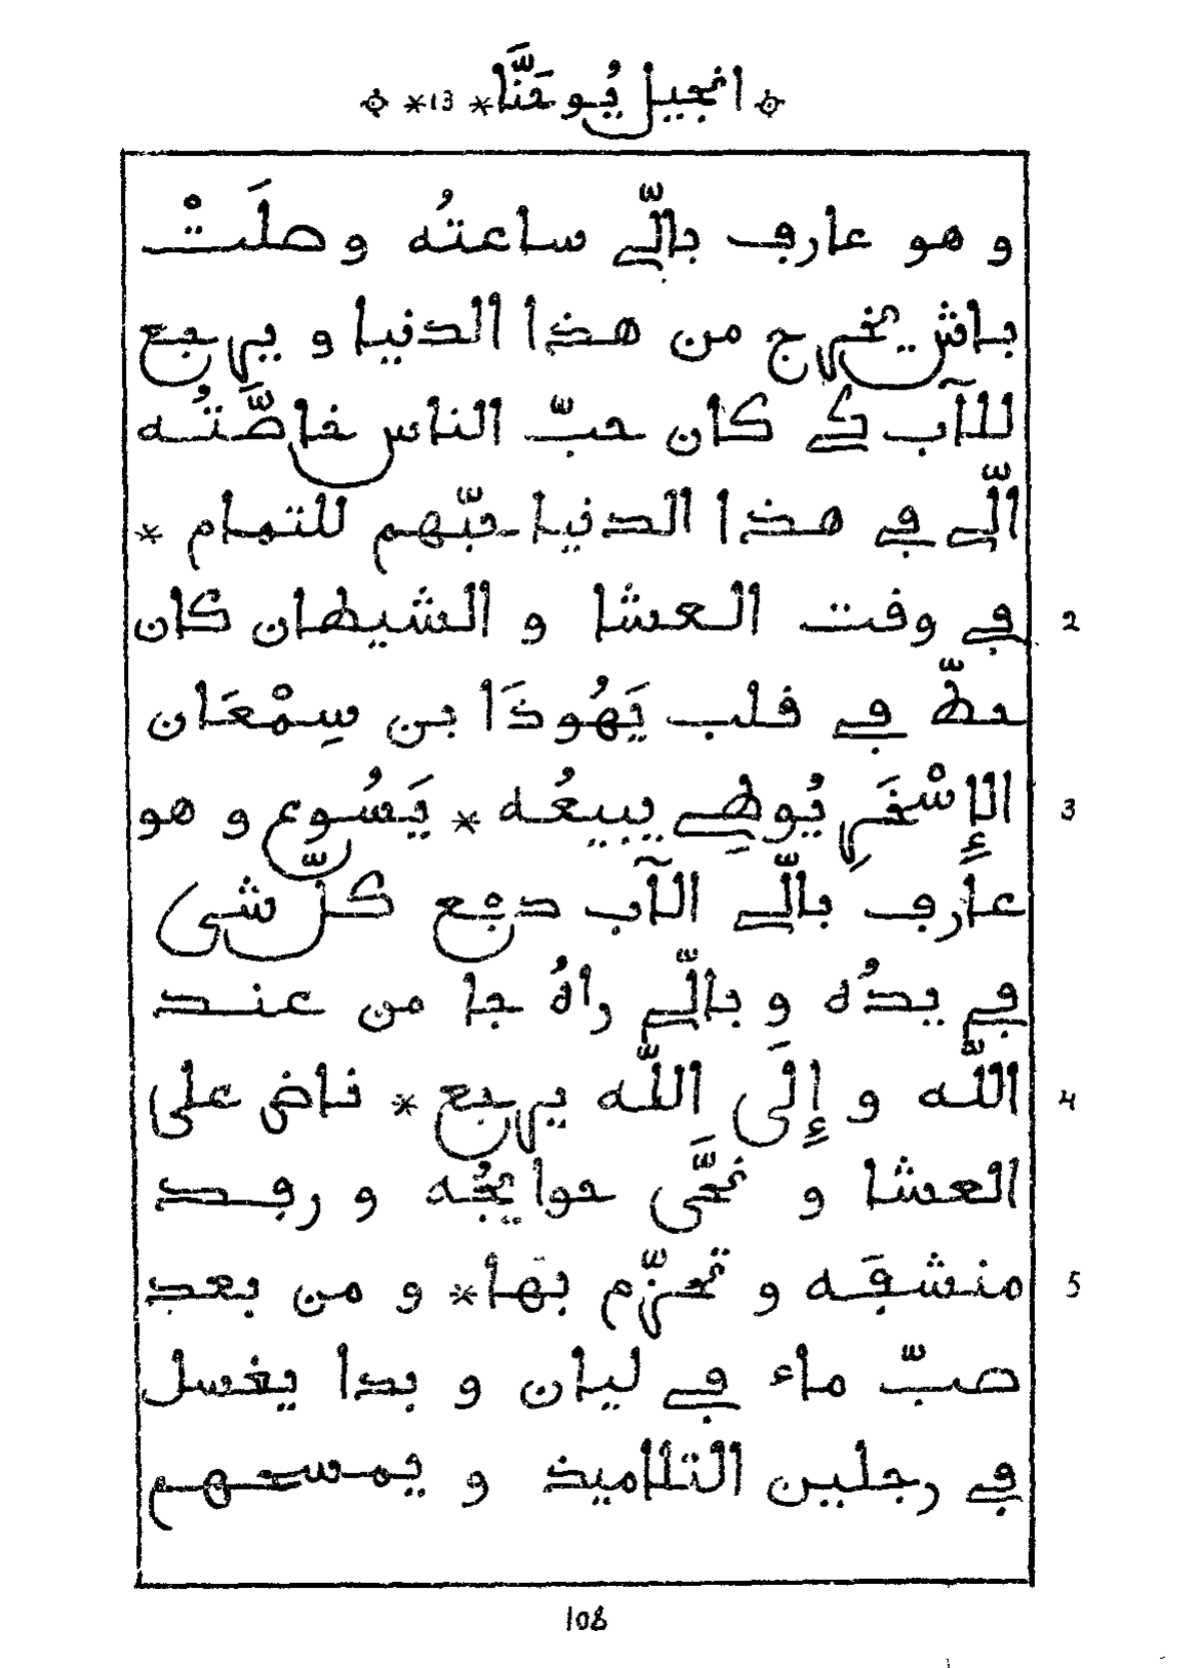 انجيل يُوحَنَّا * 13 *
و هو عارف بالّي ساعتُه وصلَتْ
باش يخرج من هذا الدنيا و يرجع
للآب كي كان حبّ الناس خاصَّتُه
الّي في هذا الدنيا حبّهم للتمام *
في وقت العشا و الشيطان كان 2
حطّ في قلب يَهُوذَا بن سِمْعَان
الإِسْخَرِيُوطِي يبيعُه * يَسُوع و هو 3
عارف بالّي الآب دفع كلّ شي
في يدُه و بالّي راهُ جا من عند
اللّه و إِلَى اللّه يرجع * ناض على 4
العشا و نحَّى حوايجُه و رفد
منشفَه و تحزّم بها * و من بعد 5
صبّ ماء في ليان و بدا يغسل
في رجلين التلاميذ و يمسحهم
108